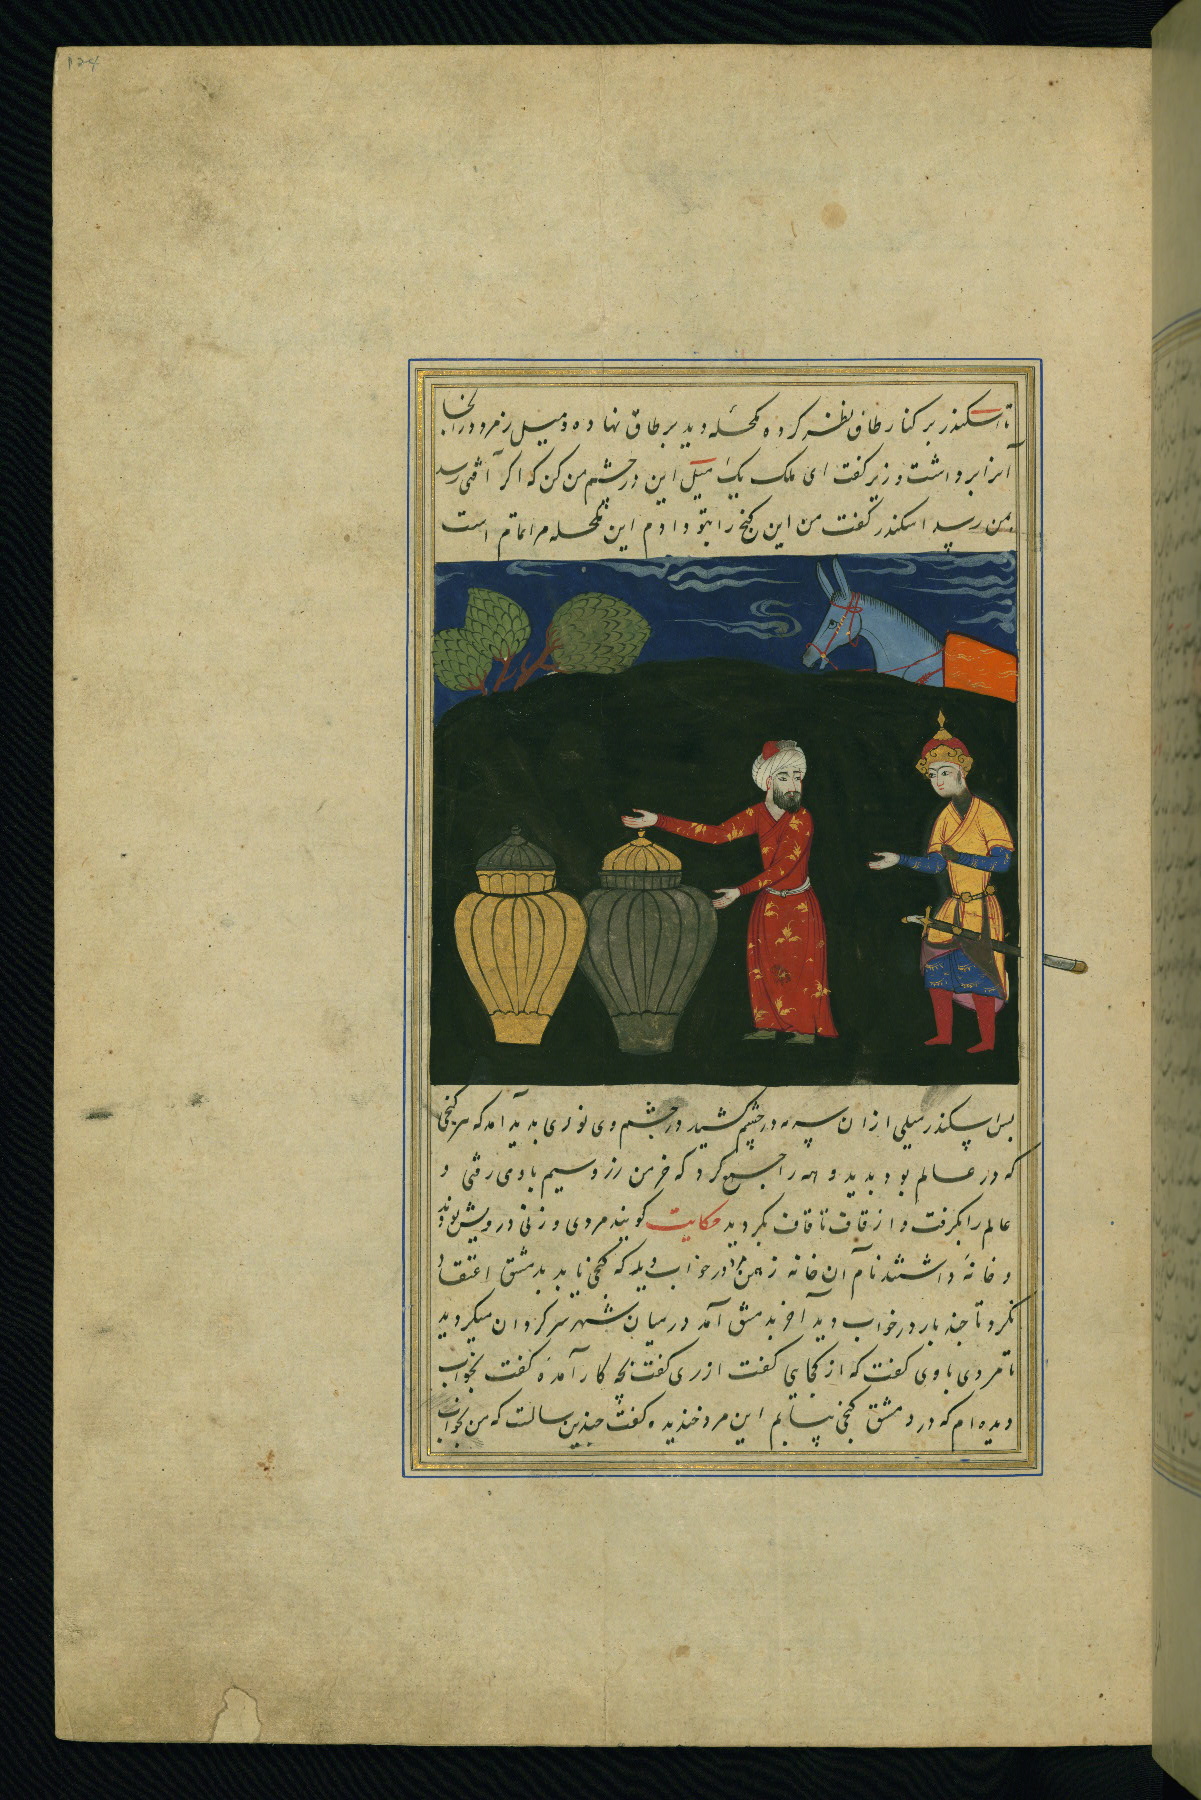 ۱۲۴
تا اسکندر بر کنار طاق نظر کرد مکحله دید بر طاق نهاده و میل زمرد در آنجا
آنرا برداشت وزیر گفت ای ملک یک میل این در چشم من کن که اگر آفتی رسد
بمن رسد اسکندر گفت من این گنج را بتو دادم این مکحله مرا تمام است
بس اسکندر میلی از ان سرمه در چشم کشید در چشم وی نوری بدید آمد که هر گنجی
که در عالم بود بدید و همه را جمع کرد که خرمن زر و سیم با وی رفتی و
عالم را بگرفت و از قاف تا قاف بگردید حکایت گویند مردی و زنی درویش بودند
و خانهٔ داشتند نام آن خانه در خواب دید که گنجی یابد بدمشق اعتقاد
نکرد تا چند بار در خواب دید آخر بدمشق آمد در میان شهر سرگردان میگردید
تا مردی باوی گفت که از کجایی گفت از ری گفت بچه کار آمدهٔ گفت بخواب
دیده ام که در دمشق گنجی بیابم این مرد خندید و گفت چندین سالست که من بخواب